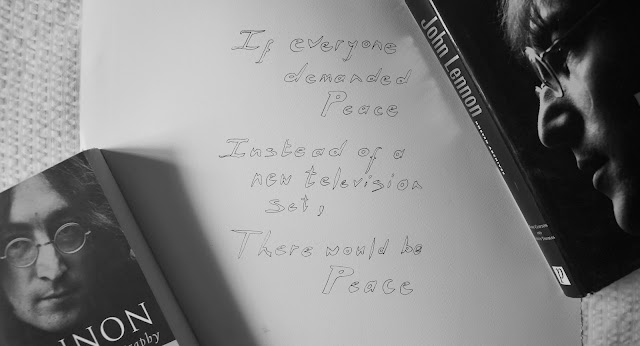 If everyone
demanded
Peace
Instead of a
new television
set,
There would be
Peace
John Lennon
NNON
graphy